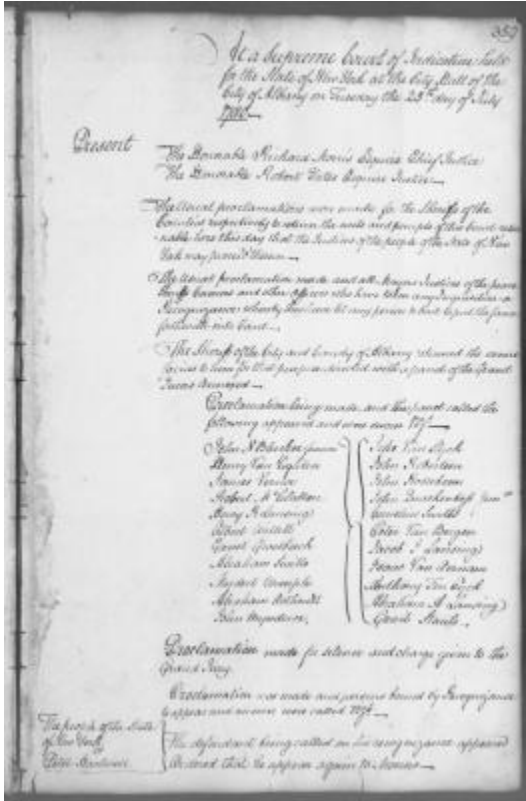 359
At a Supreme Court of Judicature held
for the State of New York at the City Hall of the
City of Albany on Tuesday the 25th day of July
Present
The Honorable Richard Morris Esquire Chief Justice
The Honorable Robert Yates Esquire Justice
The Usual proclamations were made for the Sheriffs of the
Counties respectively to return the writs and precepts of this Court return
nable here this day that the Justices of the people of the State of New
York may proceed thereon
The Usual proclamation made and all Mayors Justices of the peace
Coroners and other Officers who have taken any Inquisitions or
Recognizance whereby they have let any person to bail to put the same
forthwith into Court
The Sheriff of the City and County of Albany returned the
to him for that purpose directed with a panel of the Grand
annexed
Proclamation being made and the panel called the
following appeared and were sworn Viz
John N Bleecker
Henry Van
James
Robert
Henry R Lansing
Albert
Gerrit Groesbeck
Abraham
Myndert Wemple
Abraham
John Myndersen
John Van Eyck
John Roberson
John Roseboom
John
Cornelius
Peter Van Bergen
Jacob Lansing
Isaac Van Arnum
Anthony Ten Eyck
Abraham A Lansing
Gerrit Staats
Proclamation made for silence and charge given to the
Grand Jury
Proclamation was made and persons bound by Recognizance
to appear and answer were called Viz
The people of the State
of New York
The defendant being called on his recognizance appeared
Ordered that he appear again to Morrow